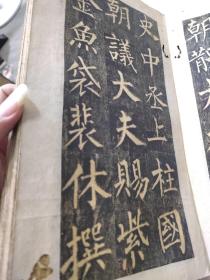 史中丞上柱國
朝議大夫賜紫
金魚袋裴休撰
朝散大